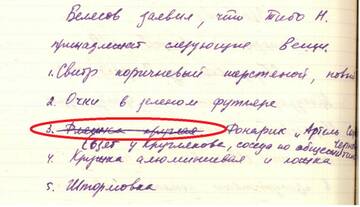 Велесов заявил, что Тибо Н.
принадлежит следующие вещи.
1. Свитр коричневый шерстяной, новый
2. Очки в зеленом футляре
3. Фляжка круглая Фонарик „Артель
(взят у Круглекова, соседа по общежитию
4. Кружка алюминиевая и ложка
5. Штормовка